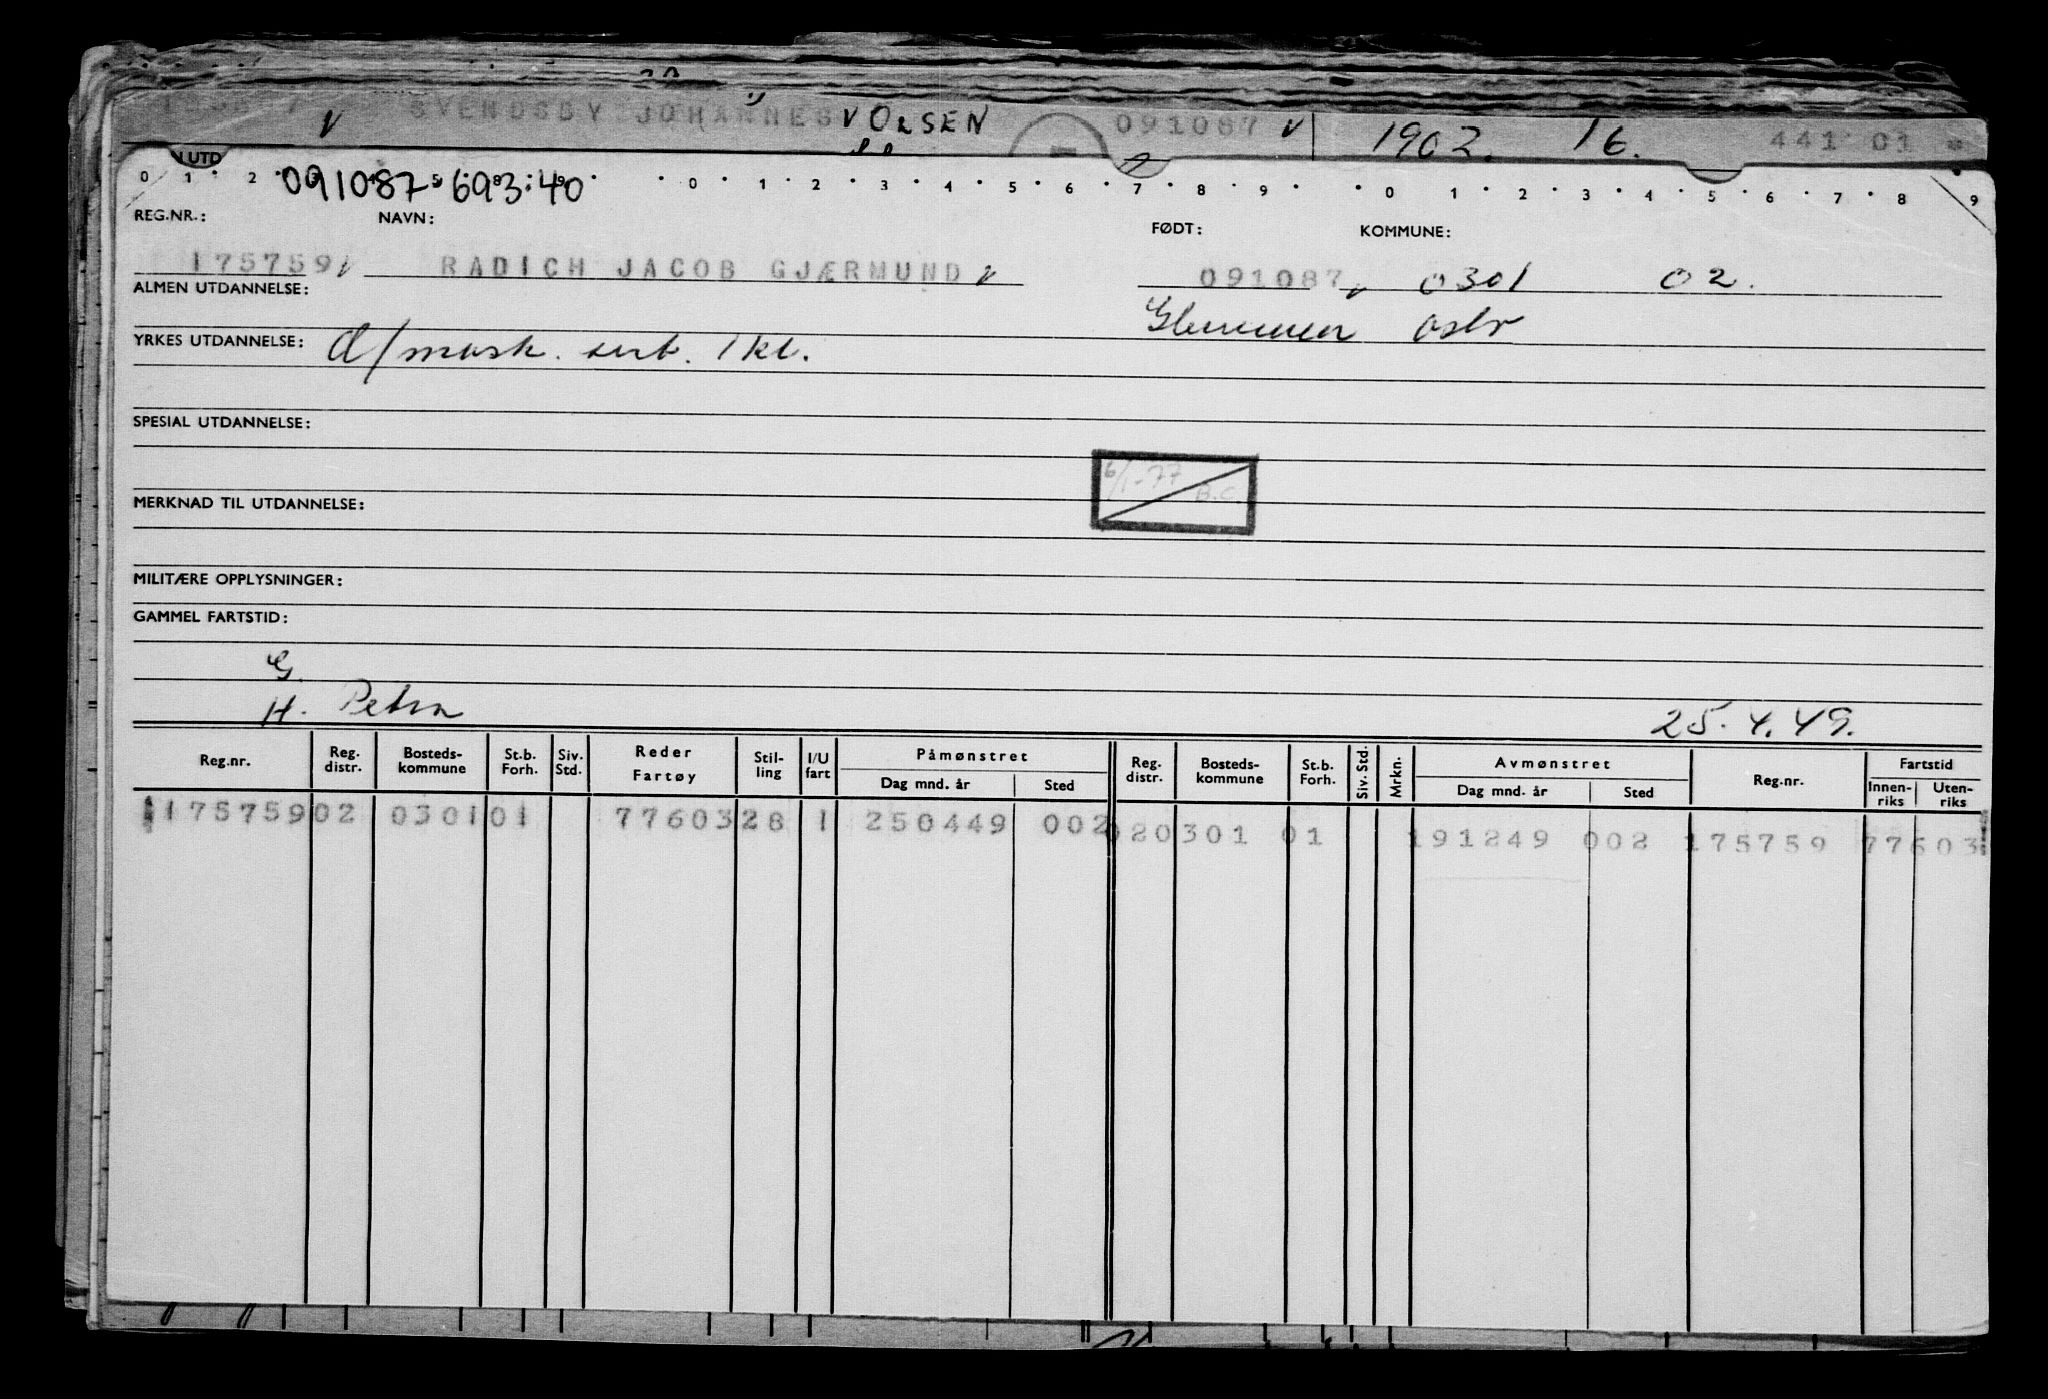 SVENDSBY JOHANNES v OLSEN 091087 v 1902. 16. 441 01
I UTD
0 1 2 3 4 5 6 7 8 9 0 1 2 3 4 5 6 7 8 9 0 1 2 3 4 5 6 7 8 9
091087 693 40
REG.NR.: NAVN: FØDT: KOMMUNE:
175759 v RADICH JACOB GJÆRMUND v 091087 v 0301 02.
ALMEN UTDANNELSE:
Glemmen Oslo
YRKES UTDANNELSE: d/mask. sert. 1 kl.
SPESIAL UTDANNELSE:
6/1-77 B.C.
MERKNAD TIL UTDANNELSE:
MILITÆRE OPPLYSNINGER:
GAMMEL FARTSTID:
G.
H. Petra 25.4.49.
Reg.nr. Reg. distr. Bosteds-kommune St.b. Forh. Siv. Std. Reder Fartøy Stil-ling I/U fart Påmønstret Dag mnd. år Sted Reg. distr. Bosteds-kommune St.b. Forh. Siv. Std. Mrkn. Avmønstret Dag mnd. år Sted Reg.nr. Fartstid Innen-riks Uten-riks
175759 02 0301 01 77603 28 1 250449 002 020301 01 191249 002 175759 77603